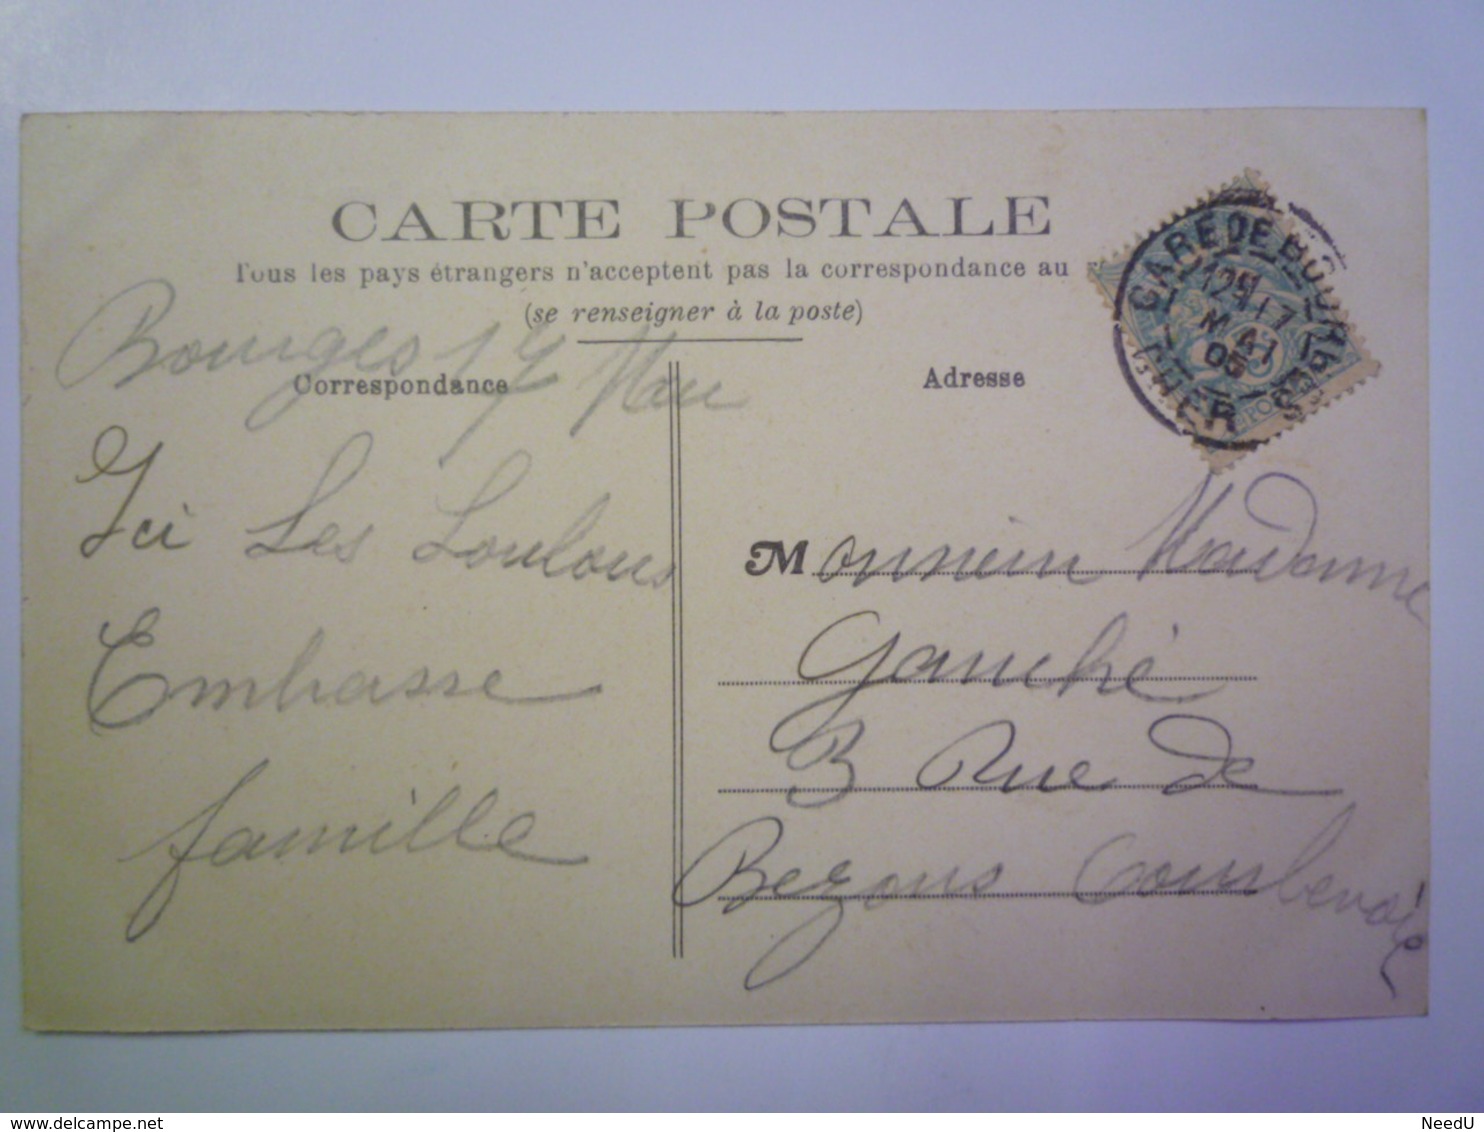 CARTE POSTALE
Tous les pays étrangers n'acceptent pas la correspondance au
(se renseigner à la poste)
Correspondance
Adresse
GARE DE BOURGES
CHER
17
MAI
05
Bourges 17 Mai
Ici Les Loulous
Embrasse
famille
Monsieur Madame
Gauché
3 Rue de
Bezons Courbevoie
NeedU
delcampe.net